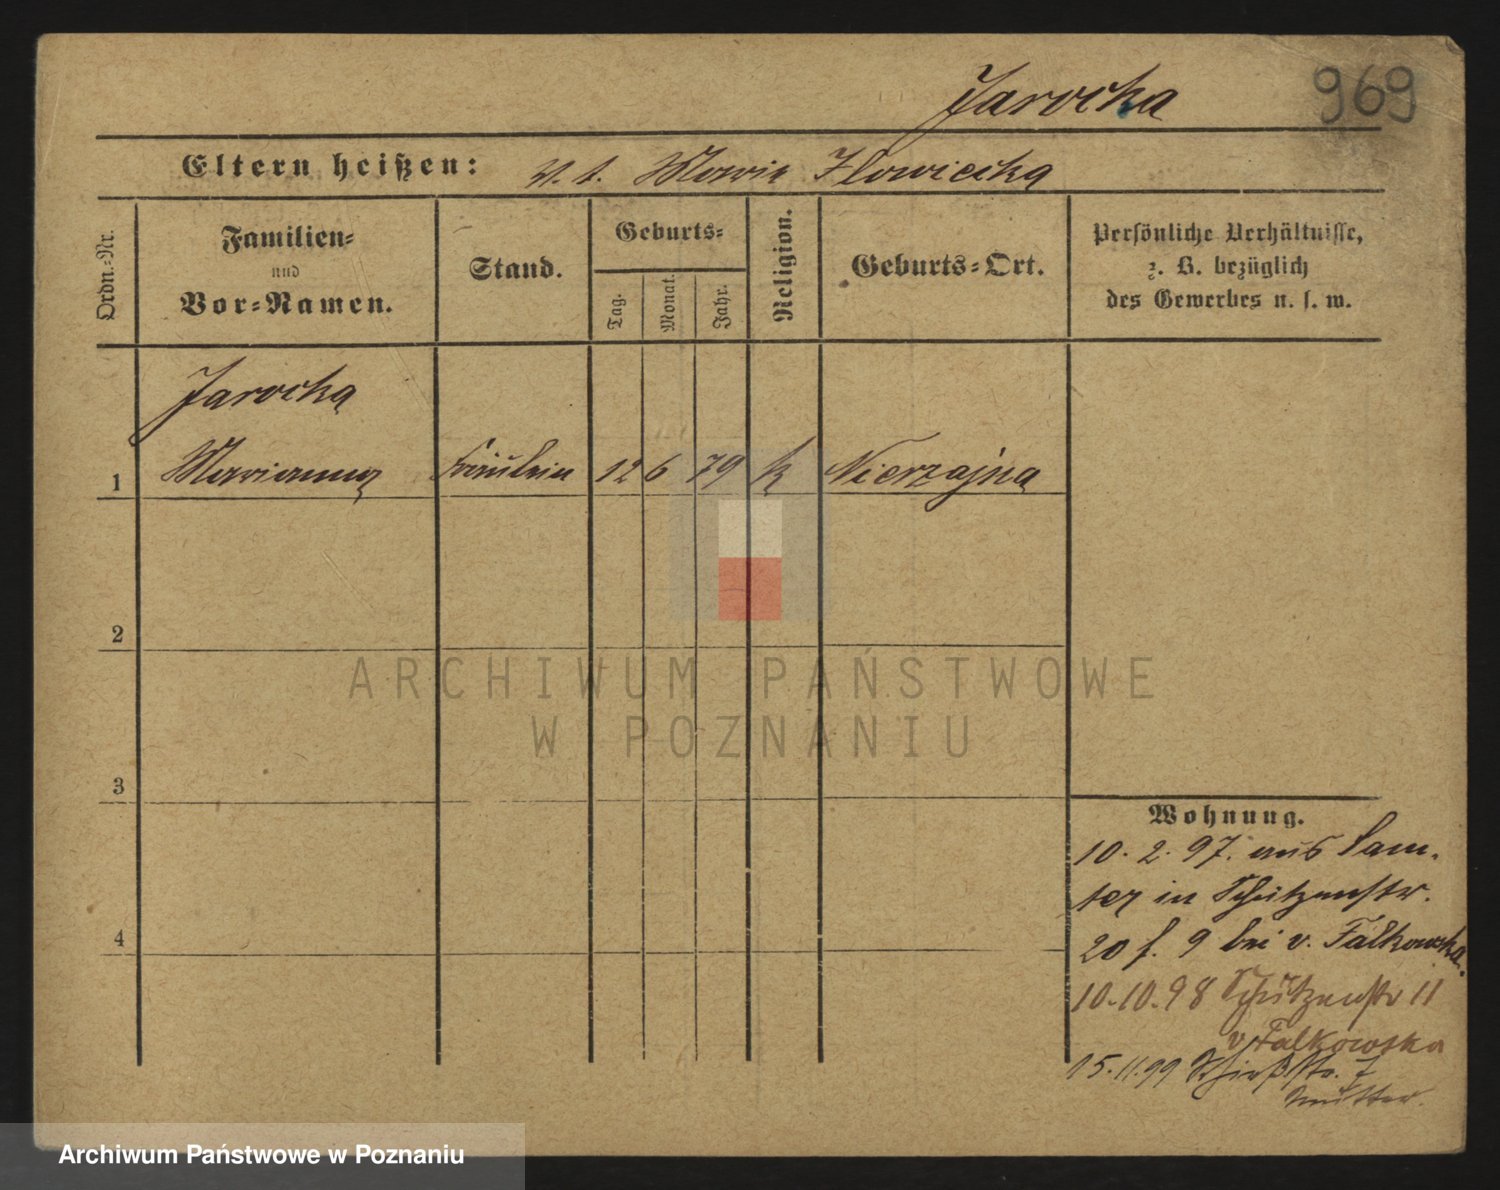 Jarocka
969
Eltern heißen: V. t. Marie Ilowiecka
Ordn.-Nr.
Familien-
und
Vor-Namen.
Stand.
Geburts-
Tag.
Monat.
Jahr.
Religion.
Geburts-Ort.
Persönliche Verhältnisse,
z. B. bezüglich
des Gewerbes u. s. w.
Jarocka
1 Marianna Fräulein 12 6 79 k Nierzajna
2
ARCHIWUM PAŃSTWOWE
W POZNANIU
3
4
Wohnung.
10. 2. 97. aus Sam-
ter in Schützenstr.
20 f. 9 bei v. Falkowska.
10.10.98 Schützenstr 11
v Falkowska
15.11.99 Schießstr. 7
Mutter.
Archiwum Państwowe w Poznaniu